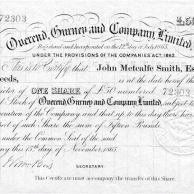 72303
4,50
Overend, Gurney and Company Limited,
Registered and Incorporated on the 12th day of July 1865.
UNDER THE PROVISIONS OF THE COMPANIES ACT, 1862.
This is to Certify that John Metcalfe Smith, Es
eeds, is at the date hereof the
of ONE SHARE of £50 numbered 72303
Stock of Overend, Gurney and Company Limited, subject to
of the Company and that up to this day there
of such Share the sum of Fifteen Pounds.
under the Common Seal of the
this 15th day of November 1865
SECRETARY
This Certificate must accompany the transfer of this Share.